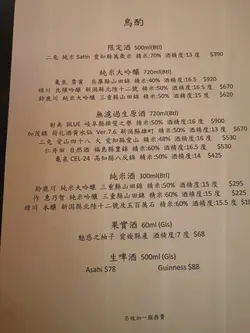 鳥酌
限定酒 500ml(Btl)
二兎 純米 Satin 愛知縣萬歲米 精米:70% 酒精度:13 度 $390
純米大吟釀 720ml(Btl)
亀泉 貴賓 兵庫縣山田錦 精米:40% 酒精度:16.5 $920
緑川 新潟縣北陸十二號 精米:50% 酒精度:16.5 度 $670
鈴鹿川 純米大吟釀 三重縣山田錦 精米:50% 酒精度:15 度 $620
無濾過生原酒 720ml(Btl)
射美 BLUE 岐阜縣 精米:50% 酒精度:16 度 $900
加茂錦 荷札酒 Ver.7.6 新潟縣 精米:50% 酒精度:15 度 $670
二兎 愛山四十八 愛知縣愛山 精米:48% 酒精度:16 度 $690
仁井田 自然酒 福島縣 精米:80% 酒精度:16 度 $600
亀泉 CEL-24 高知縣八反錦 精米:50% 酒精度:14 $425
純米酒 300ml(Btl)
鈴鹿川 純米大吟釀 三重縣山田錦 精米:50% 酒精度:15 度 $295
作 恵乃智 純米吟釀 三重縣山田錦 精米:60% 酒精度:15 度 $225
緑川 本釀 新潟縣北陸十二號及五百萬石 精米:60% 酒精度:15.5 度 $235
果實酒 60ml (Gls)
魅惑之柚子 愛媛縣產 酒精度:7度 $68
生啤酒 500ml (Gls)
Asahi $78 Guinness $88
另收加一服務費